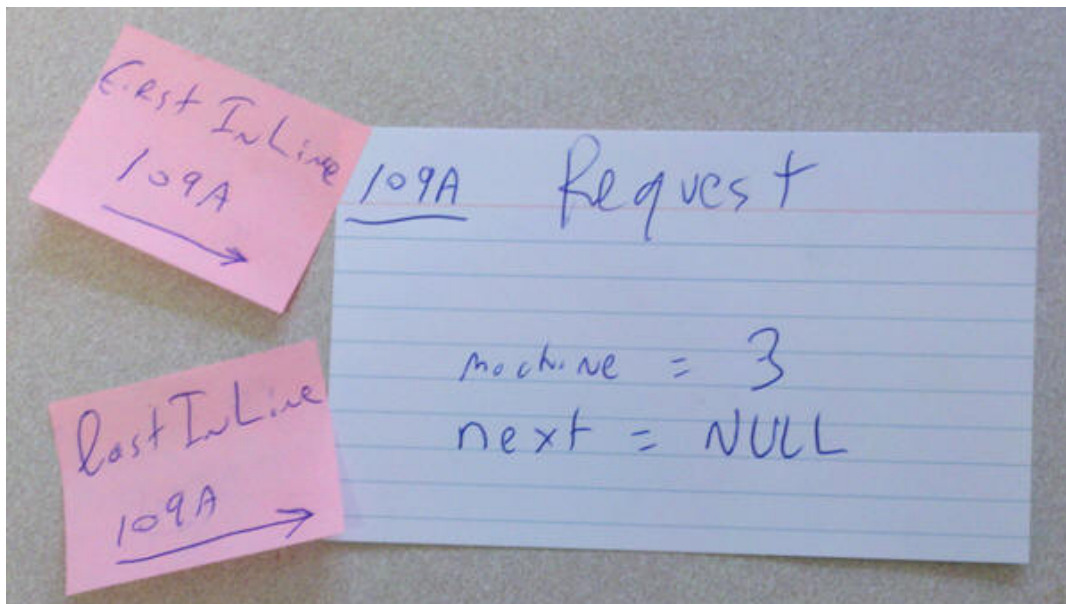 First InLine
109A
109A Request
machine = 3
next = NULL
last InLine
109A